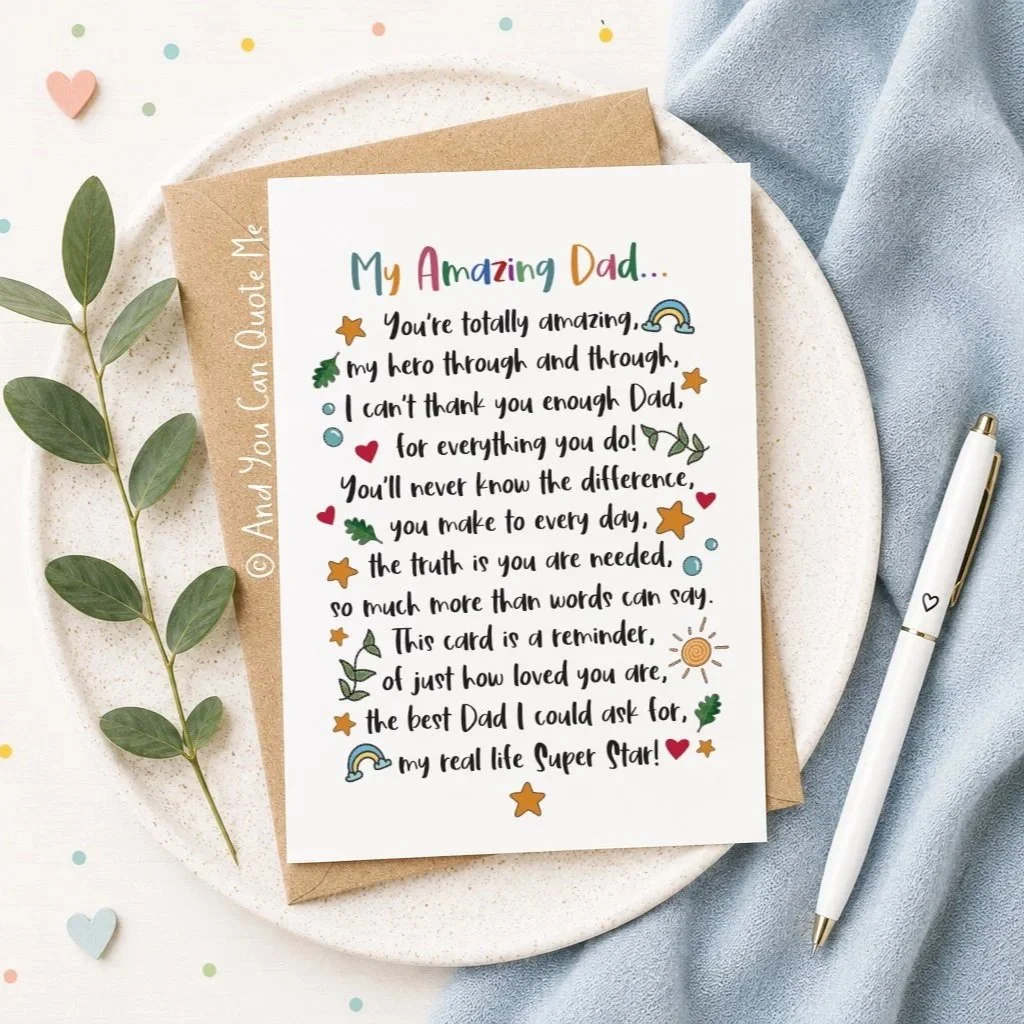 My Amazing Dad...
You're totally amazing,
my hero through and through,
I can't thank you enough Dad,
for everything you do!
You'll never know the difference,
you make to every day,
the truth is you are needed,
so much more than words can say.
This card is a reminder,
of just how loved you are,
the best Dad I could ask for,
my real life Super Star!
© And You Can Quote Me